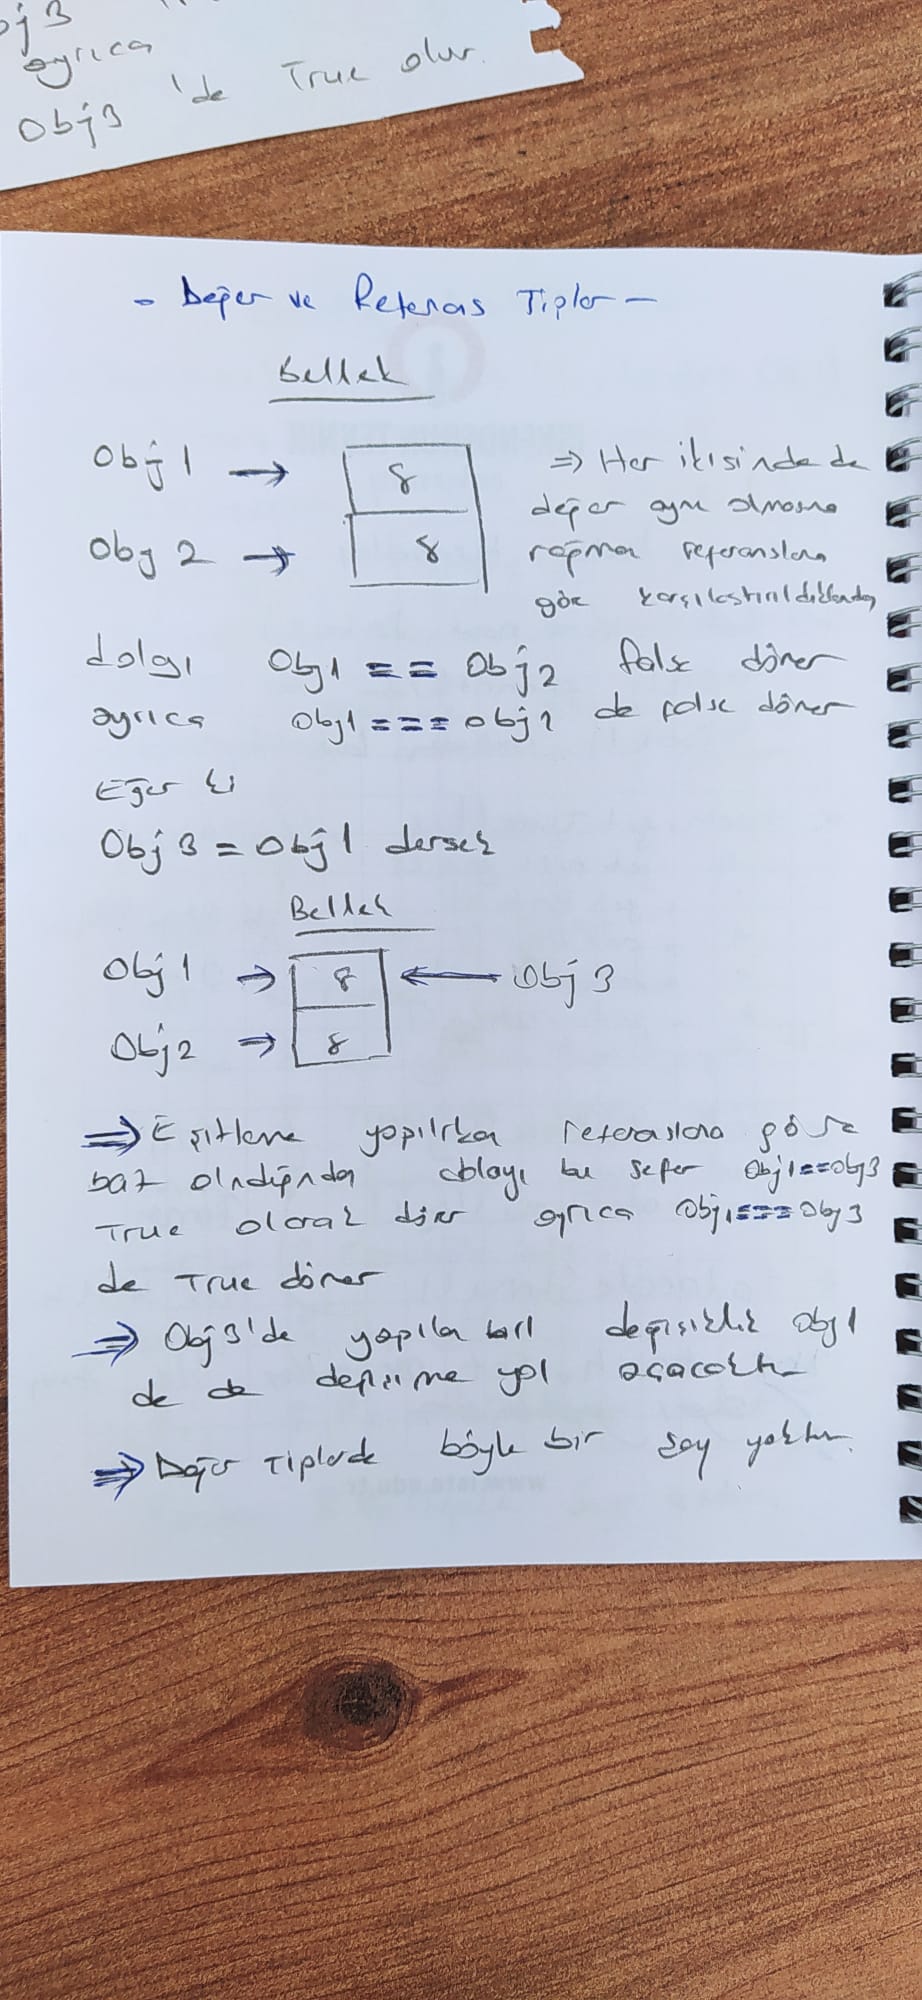 obj3
ayrıca
Obj3 'de True olur.
- Değer ve Referas Tipler -
Bellek
Obj1 → 8
Obj 2 → 8
⇒ Her ikisinde de
değer aynı olmasına
rağmen referanslara
göre karşılaştırıldıklarından
dolayı Obj1 == Obj2 false döner
ayrıca obj1 === obj2 de false döner
Eğer ki
Obj3 = Obj1 dersek
Bellek
Obj1 → 8 ← Obj3
Obj2 → 8
⇒ Eşitleme yapılırken referaslara göre
baz alındığından dolayı bu sefer Obj1==Obj3
True olarak döner ayrıca Obj1===Obj3
de True döner
⇒ Obj3'de yapılan değişiklik Obj1
de de değişime yol açacaktır
⇒ Değer Tiplerde böyle bir şey yoktur.